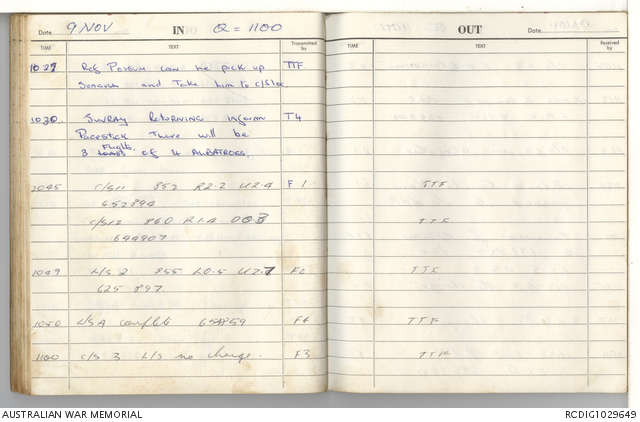 Date 9 NOV IN Q = 1100
TIME TEXT Transmitted by
1027 Ref Possum can he pick up TTF
Sunray and Take him to c/s
1030 Sunray Returning inform T4
Pacestick There will be
Flights
3 of 4 ALBATROSS.
1045 c/s 11 852 R2.2 U2.4 F1
652894
c/s 12 860 R1.4
644907
1049 L/S 2 855 L0.5 U2.7 F2
625 897.
1050 4/5A complete F4
1100 c/s 3 L/S no change. F3
OUT Date
TIME TEXT Received by
TTF
TTF
TTF
TTF
TTF
AUSTRALIAN WAR MEMORIAL
RCDIG1029649